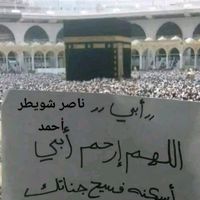 ,, أبي ,, ناصر شويطر
أحمد
اللهم إرحم أبي
أسكنه فسيح جناتك